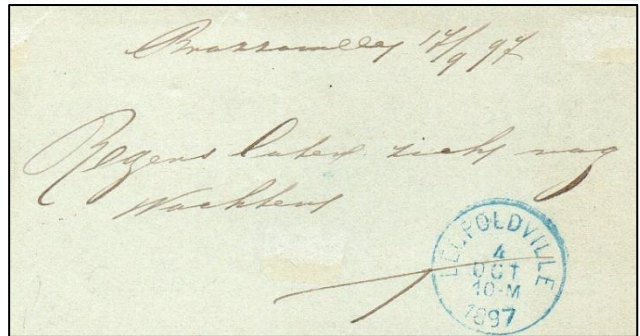 Brazzaville 17/9 97
Regens laten zich nog
Wachten
LEOPOLDVILLE
4
OCT
10-M
1897